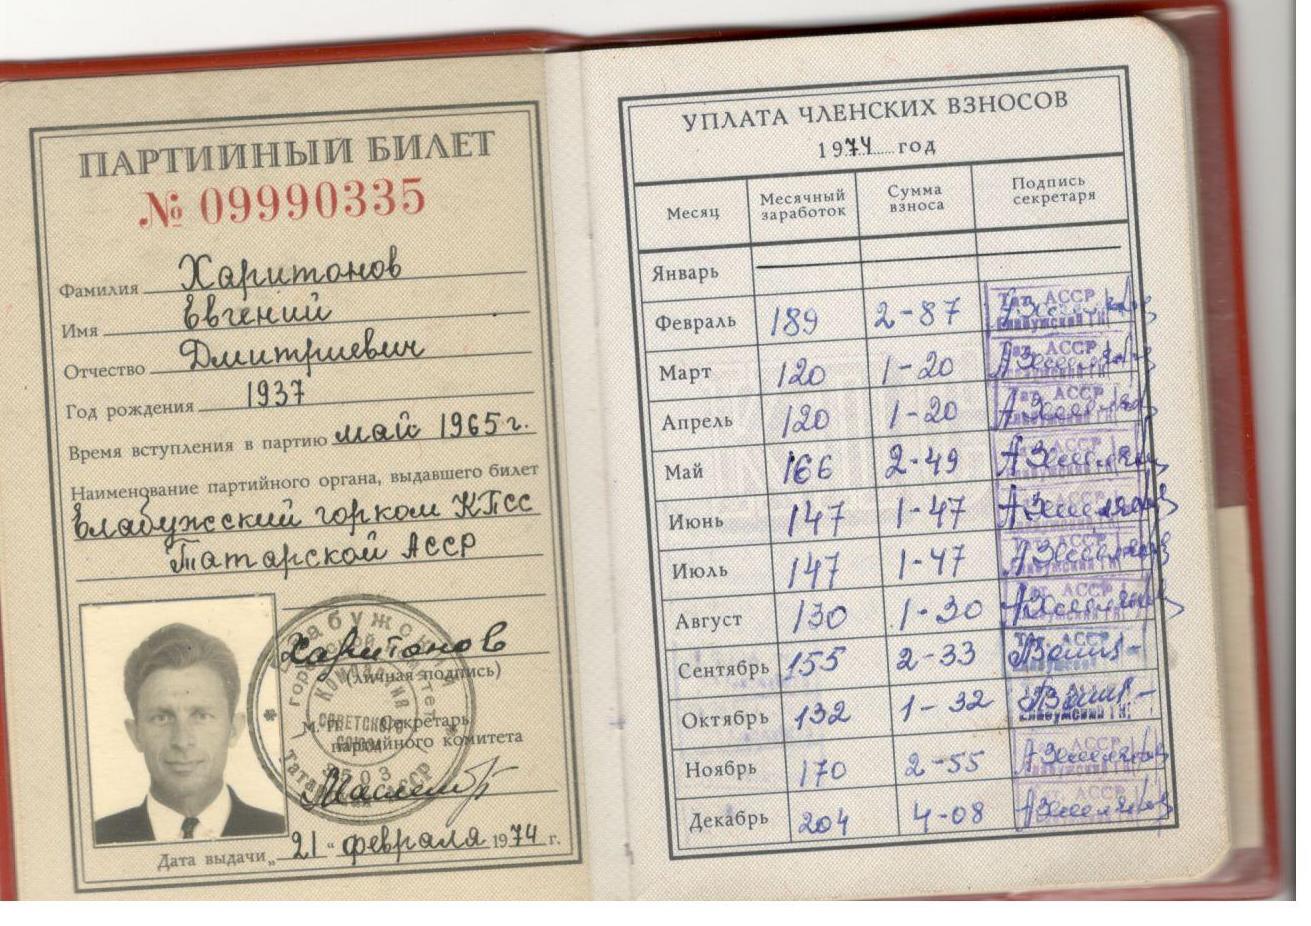 ПАРТИЙНЫЙ БИЛЕТ
№ 09990335
Фамилия Харитонов
Имя Евгений
Отчество Дмитриевич
Год рождения 1937
Время вступления в партию май 1965 г.
Наименование партийного органа, выдавшего билет
Елабужский горком КПСС
Татарской АССР
Харитонов
(личная подпись)
М. П. Секретарь
партийного комитета
Дата выдачи „21“ февраля 1974 г.
УПЛАТА ЧЛЕНСКИХ ВЗНОСОВ
1974 год
Месяц Месячный заработок Сумма взноса Подпись секретаря
Январь
Февраль 189 2-87 Тат. АССР
Март 120 1-20 Тат. АССР
Апрель 120 1-20 Тат. АССР
Май 166 2-49
Июнь 147 1-47
Июль 147 1-47
Август 130 1-30 Тат. АССР
Сентябрь 155 2-33 Тат. АССР
Октябрь 132 1-32
Ноябрь 170 2-55
Декабрь 204 4-08